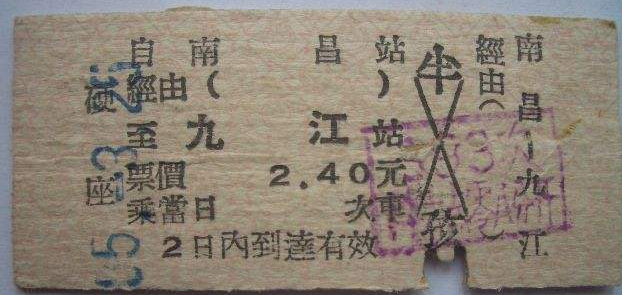 自南昌站
經由( )
至九江站
票價 2.40元
乘當日 次車
2日內到達有效
硬座
半孩
經由(
南昌-九江